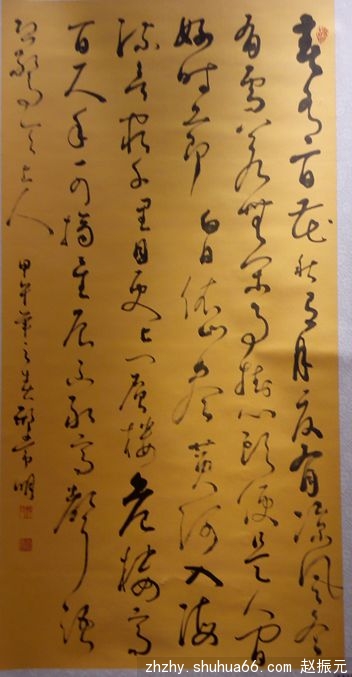 春有百花秋有月夏有凉风冬
有雪若無闲事掛心头便是人间
好时节 白日依山尽 黄河入海
流欲穷千里目更上一层楼危楼高
百尺手可摘星辰不敢高声语
恐惊天上人 甲午年之春
zhzhy.shuhua66.com 赵振元